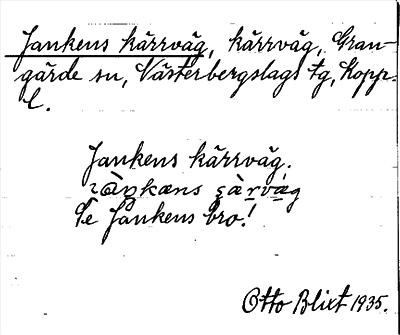 Jankens kärrväg, kärrväg, Gran-
gärde sn, Västerbergslags tg, Kopp.
l.
Jankens kärrväg.
Se Jankens bro!
Otto Blixt 1935.